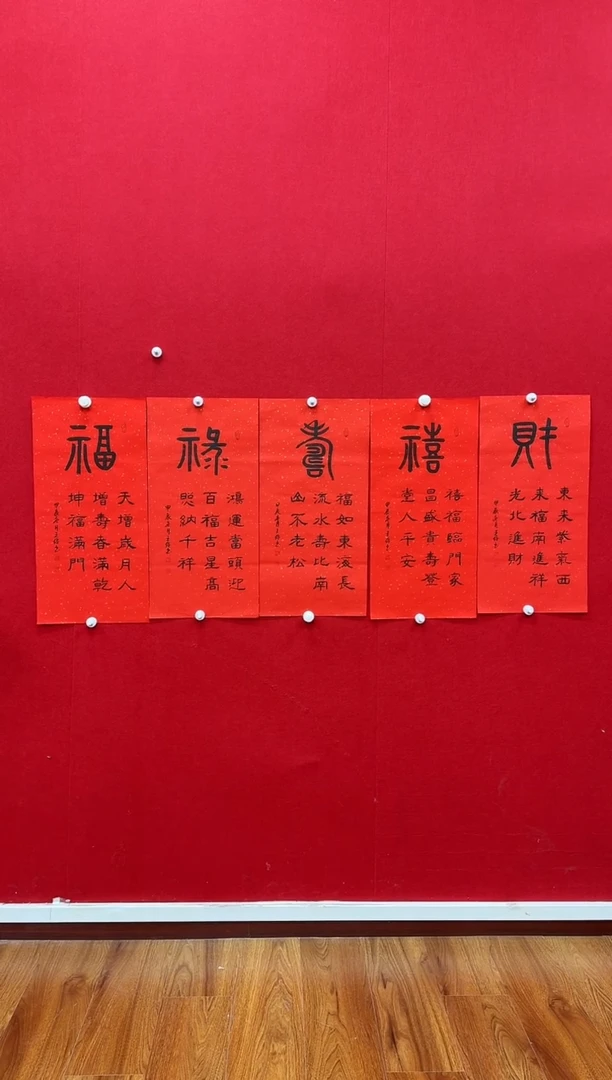 福
天增歲月人
增壽春滿乾
坤福滿門
祿
鴻運當頭迎
百福吉星高
照納千祥
壽
福如東海長
流水壽比南
山不老松
禧
禧福臨門家
昌盛壽登
堂人平安
財
東来紫氣西
来福南進祥
光北進財